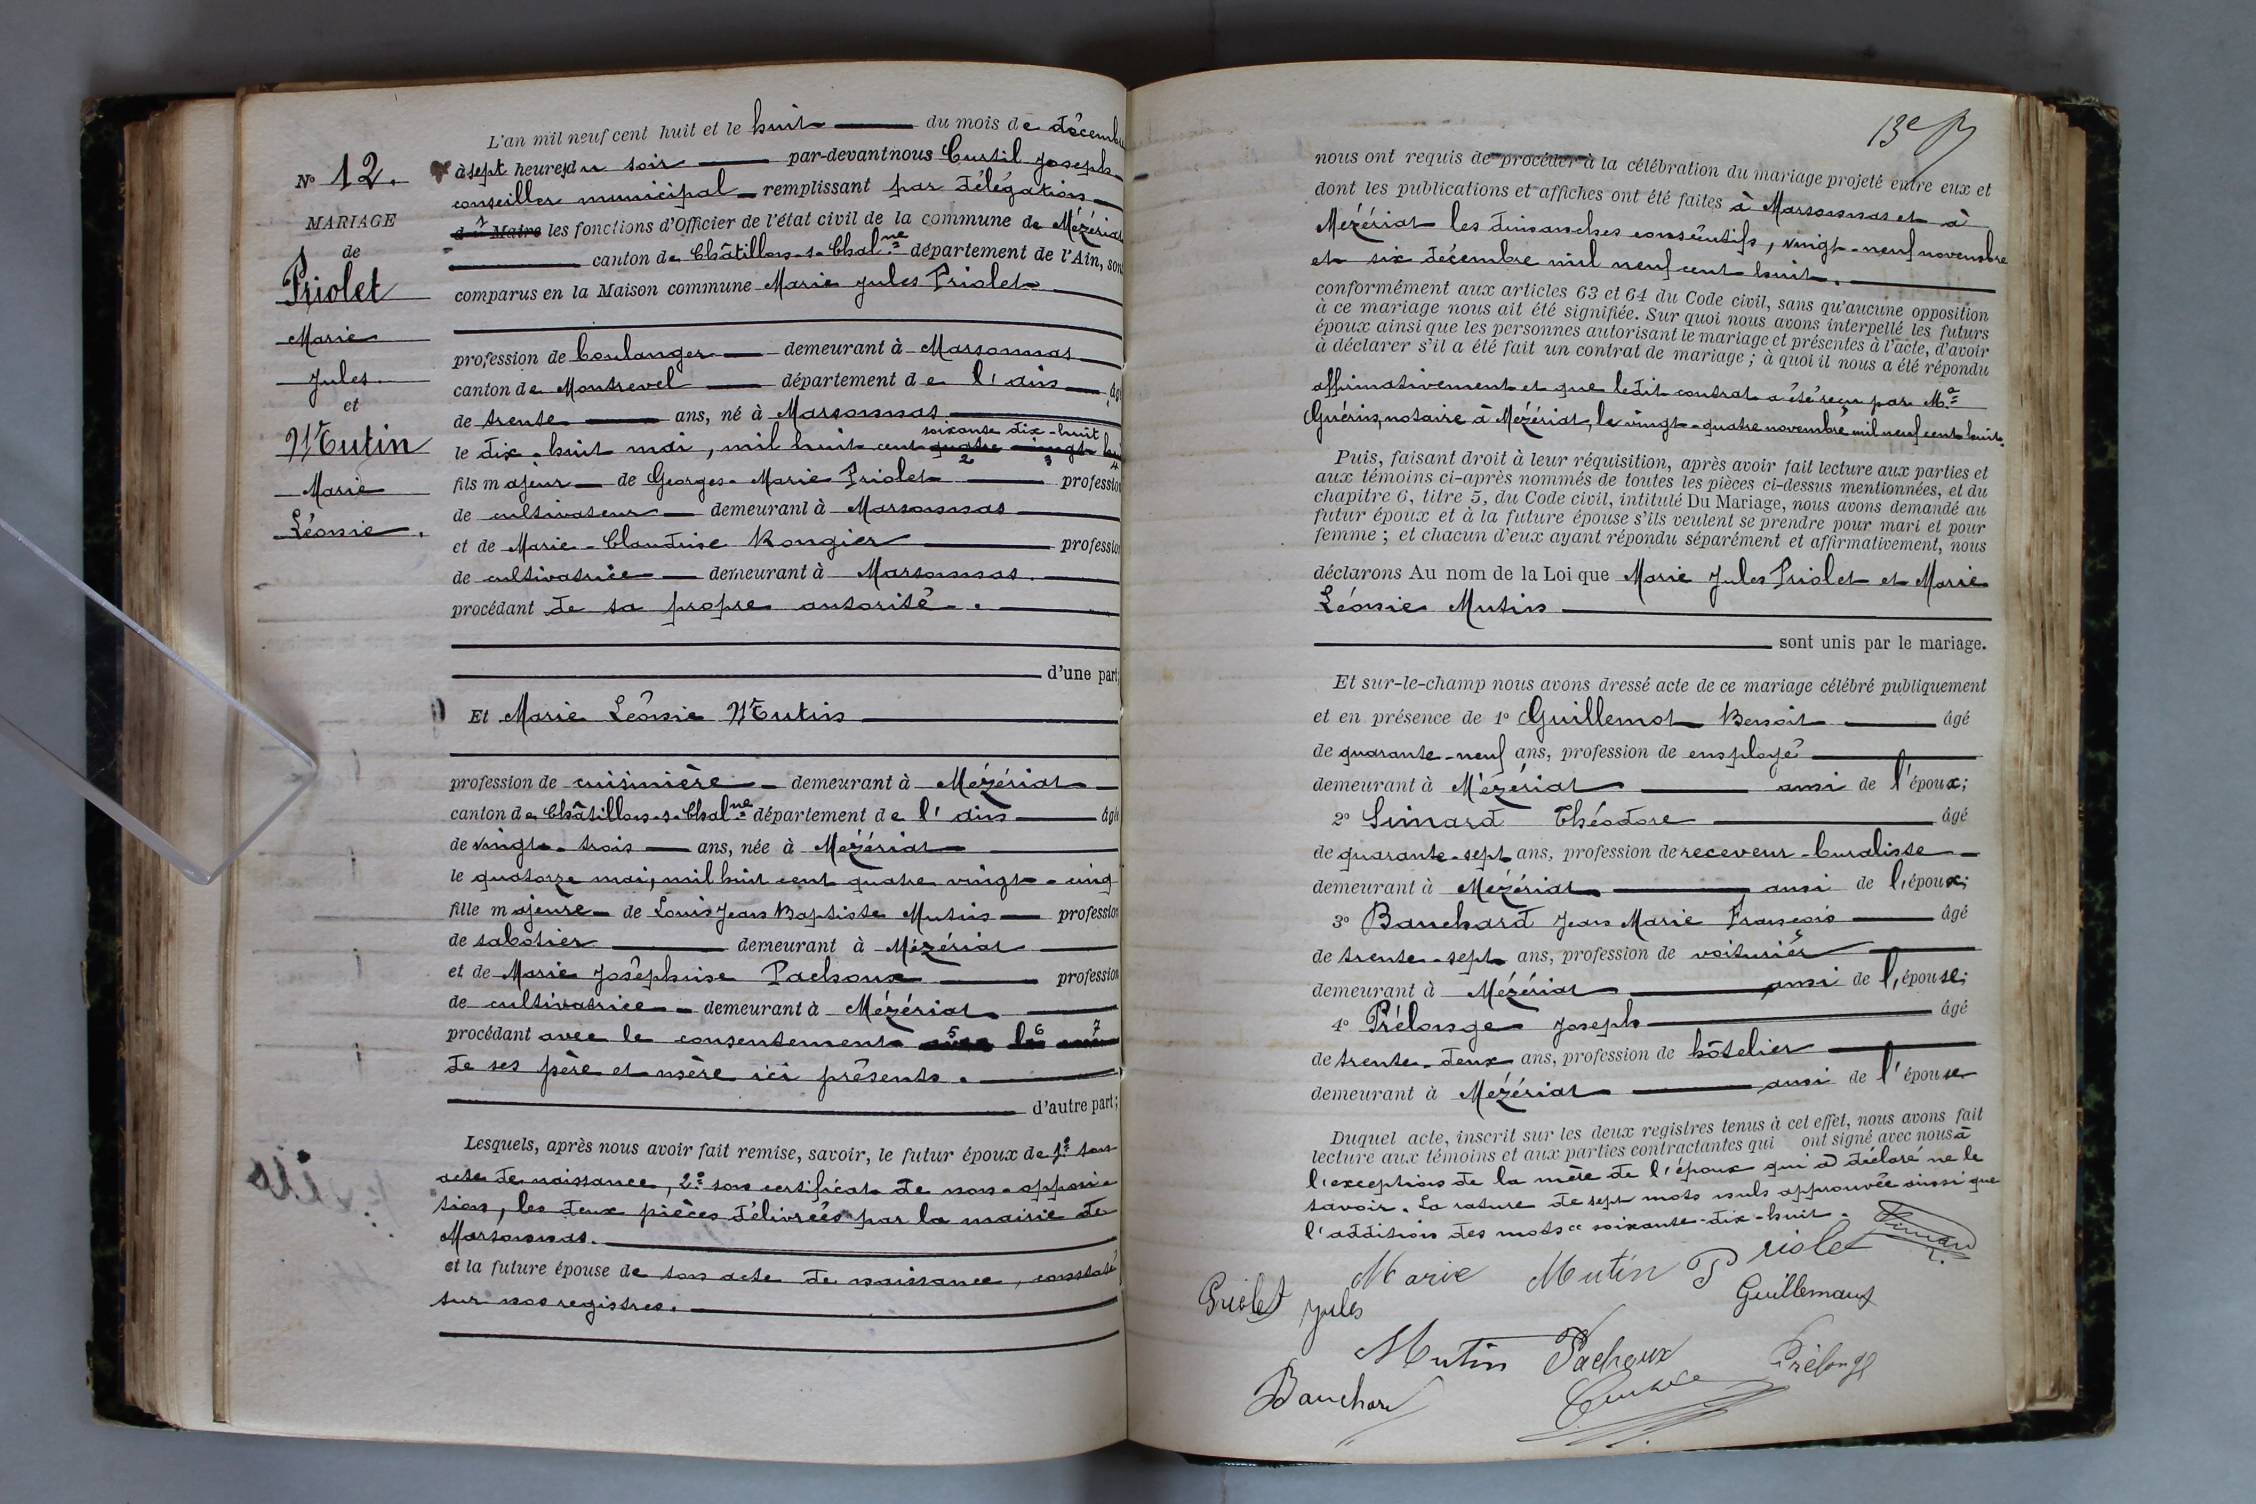 N° 12.
MARIAGE
de
Priolet
Marie
Jules
et
Mutin
Marie
Léonie.
L'an mil neuf cent huit et le huit du mois de décemb
à sept heures du soir par-devant nous Curtil Joseph
conseiller municipal remplissant par délégation
du 1 Maire les fonctions d'Officier de l'état civil de la commune de Mézériat
canton de Châtillon-s-Chalne département de l'Ain, son
comparus en la Maison commune Marie Jules Priolet
profession de boulanger demeurant à Marsonnas
canton de Montrevel département de l'Ain âgé
de trente ans, né à Marsonnas
soixante dix-huit
le dix-huit mai, mil huit cent quatre vingt hui
2 3 4
fils majeur de Georges-Marie Priolet profession
de cultivateur demeurant à Marsonnas
et de Marie-Claudine Rongier profession
de cultivatrice demeurant à Marsonnas.
procédant de sa propre autorité.
d'une part;
Et Marie Léonie Mutin
profession de cuisinière demeurant à Mézériat
canton de Châtillon-s-Chalne département de l'Ain âgée
de vingt-trois ans, née à Mézériat
le quatorze mai, mil huit cent quatre vingt-cinq
fille majeure de Louis Jean Baptiste Mutin profession
de sabotier demeurant à Mézériat
et de Marie Joséphine Pachoux profession
de cultivatrice demeurant à Mézériat
procédant avec le consentement 5 6 7
de ses père et mère ici présents.
d'autre part;
Lesquels, après nous avoir fait remise, savoir, le futur époux de 1° son
acte de naissance, 2° son certificat de non-opposi
tion, les deux pièces délivrées par la mairie de
Marsonnas.
et la future épouse de son acte de naissance, constaté
sur nos registres.
13e
nous ont requis de procéder à la célébration du mariage projeté entre eux et
dont les publications et affiches ont été faites à Marsonnas et à
Mézériat les dimanches consécutifs, vingt-neuf novembre
et six décembre mil neuf cent huit.
conformément aux articles 63 et 64 du Code civil, sans qu'aucune opposition
à ce mariage nous ait été signifiée. Sur quoi nous avons interpellé les futurs
époux ainsi que les personnes autorisant le mariage et présentes à l'acte, d'avoir
à déclarer s'il a été fait un contrat de mariage; à quoi il nous a été répondu
affirmativement et que ledit contrat a été reçu par Me
Guérin, notaire à Mézériat, le vingt-quatre novembre mil neuf cent huit.
Puis, faisant droit à leur réquisition, après avoir fait lecture aux parties et
aux témoins ci-après nommés de toutes les pièces ci-dessus mentionnées, et du
chapitre 6, titre 5, du Code civil, intitulé Du Mariage, nous avons demandé au
futur époux et à la future épouse s'ils veulent se prendre pour mari et pour
femme; et chacun d'eux ayant répondu séparément et affirmativement, nous
déclarons Au nom de la Loi que Marie Jules Priolet et Marie
Léonie Mutin
sont unis par le mariage.
Et sur-le-champ nous avons dressé acte de ce mariage célébré publiquement
et en présence de 1° Guillemot Benoit âgé
de quarante-neuf ans, profession de employé
demeurant à Mézériat ami de l'époux;
2° Simard Théodore âgé
de quarante-sept ans, profession de receveur-buraliste
demeurant à Mézériat ami de l'époux;
3° Bauchard Jean Marie François âgé
de trente-sept ans, profession de voiturier
demeurant à Mézériat ami de l'épouse;
4° Prélonge Joseph âgé
de trente-deux ans, profession de hôtelier
demeurant à Mézériat ami de l'épouse
Duquel acte, inscrit sur les deux registres tenus à cet effet, nous avons fait
lecture aux témoins et aux parties contractantes qui ont signé avec nous à
l'exception de la mère de l'époux qui a déclaré ne le
savoir. La rature de sept mots nuls approuvée ainsi que
l'addition des mots "soixante-dix-huit.
Marie Mutin Priolet
Priolet Jules
Mutin Pachoux Prélonge
Bauchard